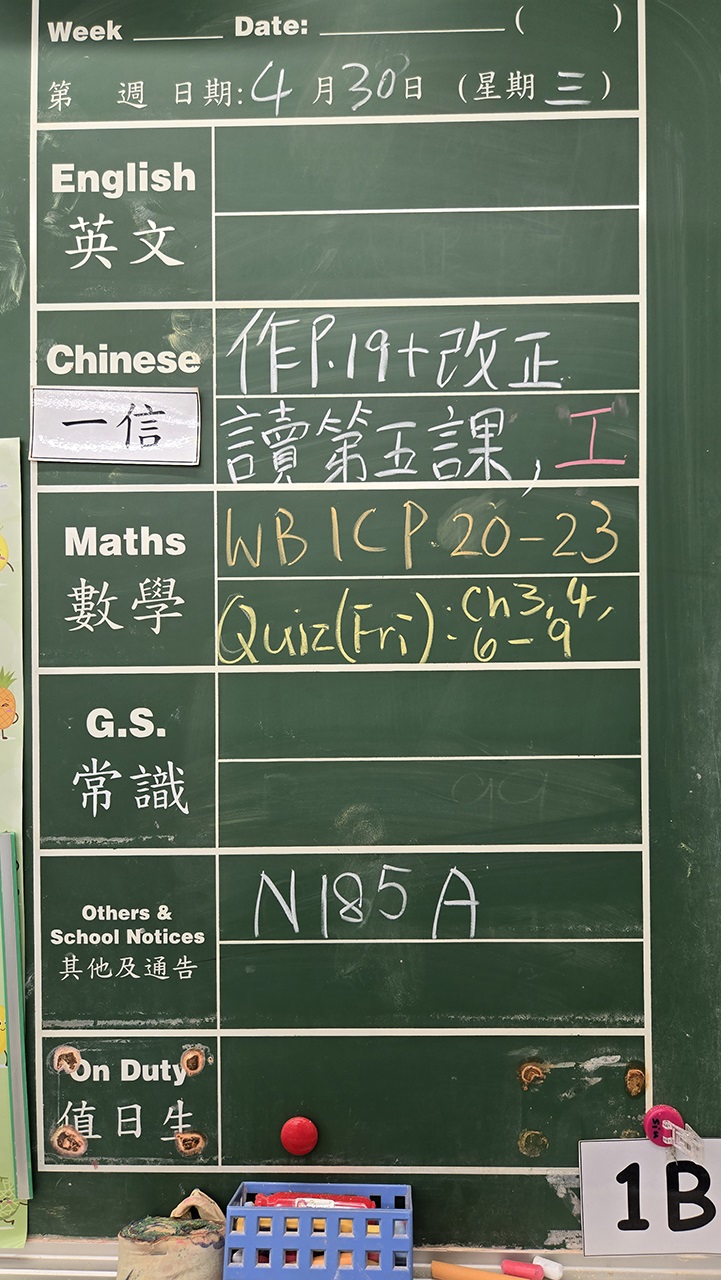 Week ______ Date: ____________ ( )
第 週 日期: 4 月 30 日 (星期 三 )
English
英文
Chinese
作P.19+改正
一信
讀第五課, 工
Maths
WB 1C P.20-23
數學
Quiz(Fri): Ch 3, 4,
6-9
G.S.
常識
Others &
School Notices
其他及通告
N185A
On Duty
值日生
1B